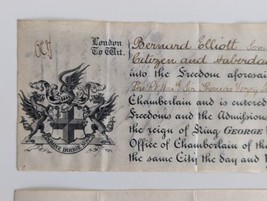 London
To Wit.
Bernard Elliott
Citizen and Haberda
into the Freedom aforesai
Chamberlain and is entered
Freedoms and the Admission
the reign of King GEORGE
Office of Chamberlain of tha
the same City the day and